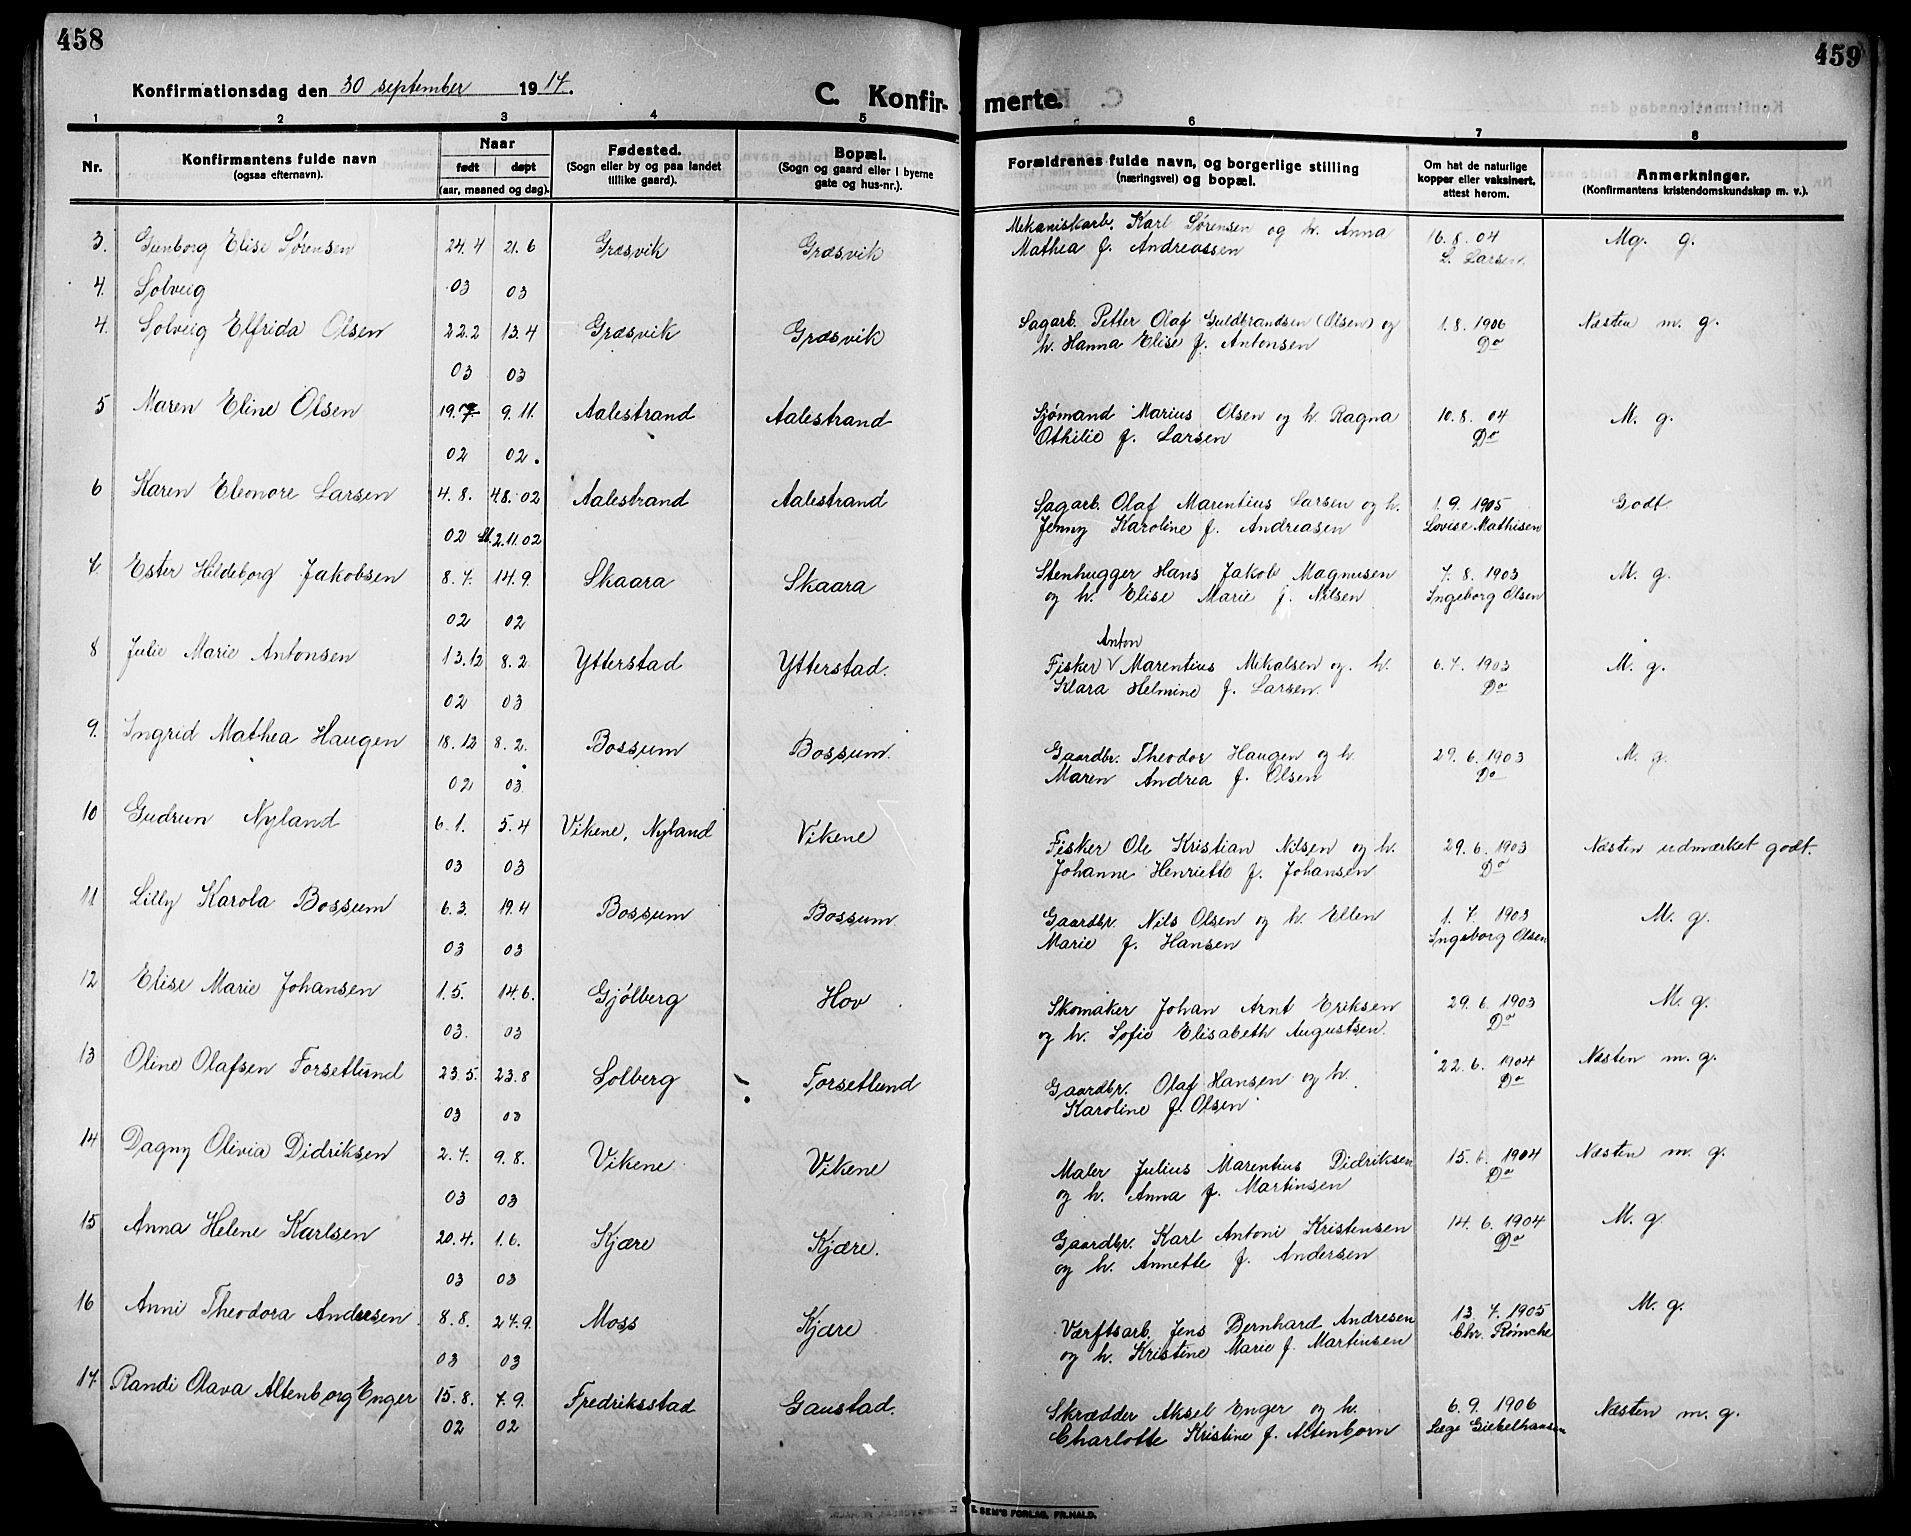 458
459
Konfirmationsdag den 30 september 1917.
C. Konfir-
merte.
1 2 3 4 5 6 7 8
Nr.
Konfirmantens fulde navn
(ogsaa efternavn).
Naar
født døpt
(aar, maaned og dag).
Fødested.
(Sogn eller by og paa landet
tillike gaard).
Bopæl.
(Sogn og gaard eller i byerne
gate og hus-nr.).
Forældrenes fulde navn, og borgerlige stilling
(næringsvei) og bopæl.
Om hat de naturlige
kopper eller vaksinert,
attest herom.
Anmerkninger.
(Konfirmantens kristendomskundskap m. v.).
3. Gunborg Elise Sørensen 24.4 21.6 Græsvik Græsvik Mekaniskarb. Karl Sørensen og h. Anna 16.8.04 Mg. g.
03 03 Mathea f. Andreassen L. Larsen.
4. Solveig
4. Solveig Elfrida Olsen 22.2 13.4 Græsvik Græsvik Sagarb. Petter Olaf Guldbrandsen (Olsen) og 1.8.1906 Næsten m. g.
03 03 h. Hanna Elise f. Antonsen Do
5 Maren Eline Olsen 19.9. 9.11. Aalestrand Aalestrand Sjømand Marius Olsen og h. Ragna 10.8.04 M. g.
02 02. Othilie f. Larsen Do
6 Karen Eleonore Larsen 4.8. 4.8.02 Aalestrand Aalestrand Sagarb. Olaf Marentius Larsen og h. 1.9.1905 Godt
02 2.11.02 Jenny Karoline f. Andreasen Lovise Mathisen
7. Ester Hildeborg Jakobsen 8.7. 14.9. Skaara Skaara Stenhugger Hans Jakob Magnusen 7.8.1903 M. g.
02 02 og h. Elise Marie f. Nilsen Ingeborg Olsen
Anton
8 Julie Marie Antonsen 13.12 8.2 Ytterstad Ytterstad. Fisker V Marentius Mikalsen og h. 6.7.1903 M. g.
02 03 Klara Helmine f. Larsen. Do
9. Ingrid Mathea Haugen 18.12 8.2. Bossum Bossum. Gaardbr. Theodor Haugen og h. 29.6.1903 M. g.
02 03 Maren Andrea f. Olsen Do
10 Gudrun Nyland 6.1. 5.4 Vikene, Nyland Vikene Fisker Ole Kristian Nilsen og h. 29.6.1903 Næsten udmærket godt.
03 03 Johanne Henriette f. Johansen Do
11 Lilly Karola Bossum 6.3. 19.4 Bossum Bossum Gaardbr. Nils Olsen og h. Ellen 1.7.1903 M. g.
03 03 Marie f. Hansen Ingeborg Olsen
12 Elise Marie Johansen 1.5. 14.6. Gjølberg Hov Skomaker Johan Arnt Eriksen 29.6.1903 M. g.
03. 03 og h. Sofie Elisabeth Augustsen. Do
13 Oline Olafsen Forsetlund 23.5. 23.8 Solberg Forsetlund Gaardbr. Olaf Hansen og h. 22.6.1904 Næsten m. g.
03 03 Karoline f. Olsen Do
14 Dagny Olivia Didriksen 2.7. 9.8. Vikene Vikene Maler Julius Marentius Didriksen 15.6.1904 Næsten m. g.
03 03 og h. Anna f. Martinsen Do
15 Anna Helene Karlsen 20.4. 1.6. Kjære Kjære. Gaardbr. Karl Antoni Kristensen 14.6.1904 M. g.
03 03 og h. Annette f. Andersen Do
16 Anni Theodora Andresen 8.8. 27.9. Moss Kjære Værftsarb. Jens Bernhard Andresen 13.7.1905 M. g.
03 03 og h. Kristine Marie f. Martinsen Chr. Rømcke
17 Randi Olava Altenborg Enger 15.8. 7.9. Fredriksstad Gaustad. Skrædder Aksel Enger og h. 6.9.1906 Næsten m. g.
02 02 Charlotte Kristine f. Altenborn Læge Giekelhausen
SEM'S FORLAG, FR.HALD.